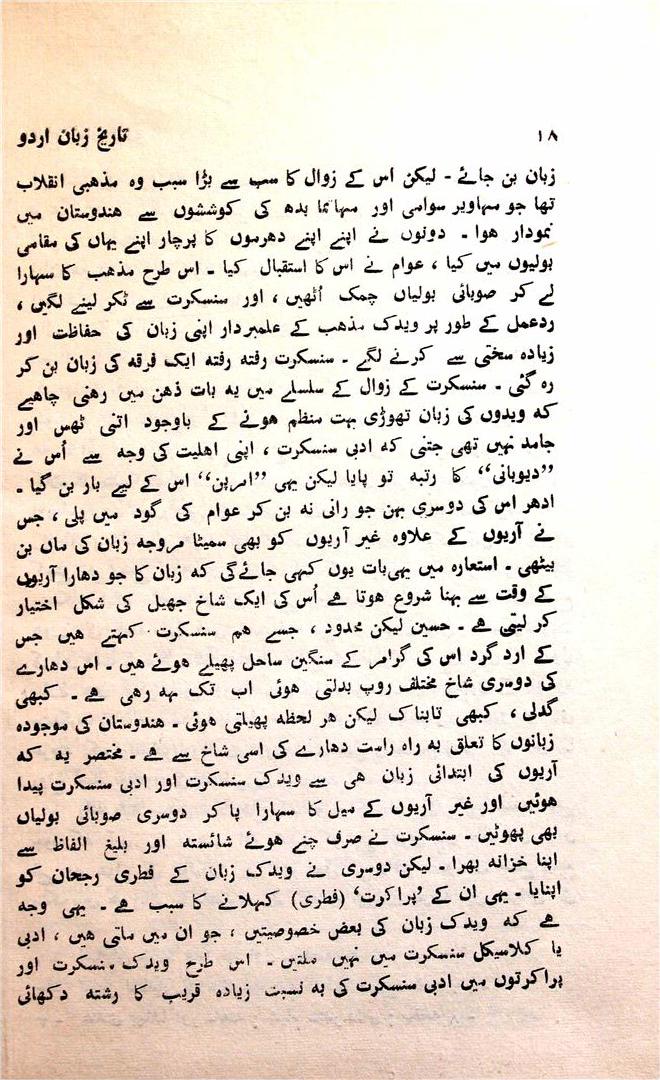 ۱۸ تاریخ زبان اردو
زبان بن جائے - لیکن اس کے زوال کا سب سے بڑا سبب وہ مذهبی انقلاب
تھا جو مہاویر سوامی اور مہاتما بدھ کی کوششوں سے هندوستان میں
نمودار هوا - دونوں نے اپنے اپنے دھرموں کا پرچار اپنے یہاں کی مقامی
بولیوں میں کیا ، عوام نے اس کا استقبال کیا - اس طرح مذهب کا سہارا
لے کر صوبائی بولیاں چمک اُٹھیں ، اور سنسکرت سے ٹکر لینے لگیں ،
ردعمل کے طور پر ویدک مذهب کے علمبردار اپنی زبان کی حفاظت اور
زیادہ سختی سے کرنے لگے - سنسکرت رفته رفته ایک فرقه کی زبان بن کر
رہ گئی - سنسکرت کے زوال کے سلسلے میں یه بات ذهن میں رهنی چاهیے
که ویدوں کی زبان تھوڑی بہت منظم هونے کے باوجود اتنی ٹھس اور
جامد نہیں تھی جتنی که ادبی سنسکرت ، اپنی اهلیت کی وجه سے اُس نے
”دیوبانی“ کا رتبه تو پایا لیکن یہی ”امرپن“ اس کے لیے بار بن گیا -
ادھر اس کی دوسری بہن جو رانی نه بن کر عوام کی گود میں پلی ، جس
نے آریوں کے علاوہ غیر آریوں کو بھی سمیٹا مروجه زبان کی ماں بن
بیٹھی - استعارہ میں یہی بات یوں کہی جائے گی که زبان کا جو دھارا آریوں
کے وقت سے بہنا شروع هوتا هے اُس کی ایک شاخ جھیل کی شکل اختیار
کر لیتی هے - حسین لیکن محدود ، جسے هم سنسکرت کہتے هیں جس
کے ارد گرد اس کی گرامر کے سنگین ساحل پھیلے هوئے هیں - اس دھارے
کی دوسری شاخ مختلف روپ بدلتی هوئی اب تک بہه رهی هے - کبھی
گدلی ، کبھی تابناک لیکن هر لحظه پھیلتی هوئی - هندوستان کی موجودہ
زبانوں کا تعلق به راہ راست دھارے کی اسی شاخ سے هے - مختصر یه که
آریوں کی ابتدائی زبان هی سے ویدک سنسکرت اور ادبی سنسکرت پیدا
هوئیں اور غیر آریوں کے میل کا سہارا پا کر دوسری صوبائی بولیاں
بھی پھوٹیں - سنسکرت نے صرف چنے هوئے شائسته اور بلیغ الفاظ سے
اپنا خزانه بھرا - لیکن دوسری نے ویدک زبان کے فطری رجحان کو
اپنایا - یہی ان کے ’پراکرت‘ (فطری) کہلانے کا سبب هے - یہی وجه
هے که ویدک زبان کی بعض خصوصیتیں ، جو ان میں ملتی هیں ، ادبی
یا کلاسیکل سنسکرت میں نہیں ملتیں - اس طرح ویدک سنسکرت اور
پراکرتوں میں ادبی سنسکرت کی به نسبت زیادہ قریب کا رشته دکھائی